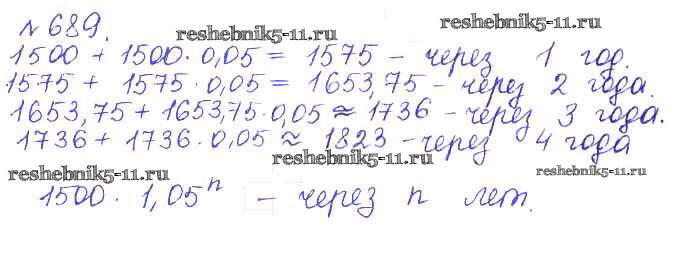 № 689.
reshebnik5-11.ru
reshebnik5-11.ru
1500 + 1500 · 0,05 = 1575 – через 1 год.
1575 + 1575 · 0,05 = 1653,75 – через 2 года.
1653,75 + 1653,75 · 0,05 ≈ 1736 – через 3 года.
1736 + 1736 · 0,05 ≈ 1823 – через 4 года
reshebnik5-11.ru
reshebnik5-11.ru
reshebnik5-11.ru
1500 · 1,05ⁿ – через n лет.